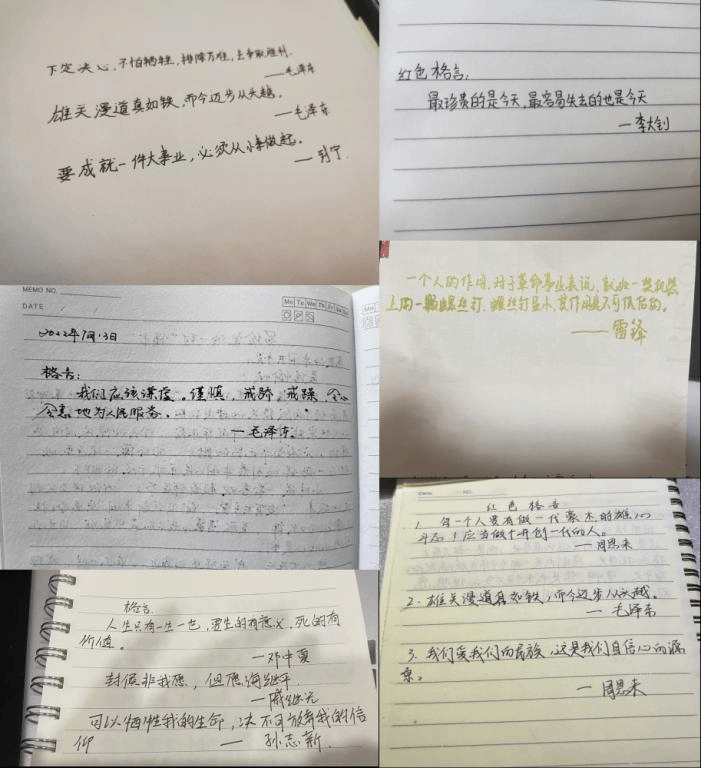 下定决心，不怕牺牲，排除万难，去争取胜利。
——毛泽东
雄关漫道真如铁，而今迈步从头越。
——毛泽东
要成就一件大事业，必须从小事做起。
——列宁
红色格言：
最珍贵的是今天，最容易失去的也是今天
—李大钊
一个人的作用，对于革命事业来说，就如一架机器
上的一颗螺丝钉。螺丝钉虽小，其作用是不可估估的。
——雷锋
MEMO NO.
DATE
Mo Tu We Th Fr Sa Su
2022年1月13日
格言：
我们应该谦虚。谨慎，戒骄，戒躁，全心
全意地为人民服务。
—毛泽东。
格言.
人生只有一生一死，要生的有意义，死的有
价值。
—邓中夏
封侯非我愿，但愿海继平
—戚继光
可以牺牲我的生命，决不可放弃我的信
仰 — 孙志新
Date. No.
红色格言
1. 每一个人要有做一代豪杰的雄心
斗志！应当做个开创一代的人。
—周恩来
2. 雄关漫道真如铁，而今迈步从头越。
— 毛泽东
3. 我们爱我们的民族，这是我们自信心的源
泉。
—周恩来